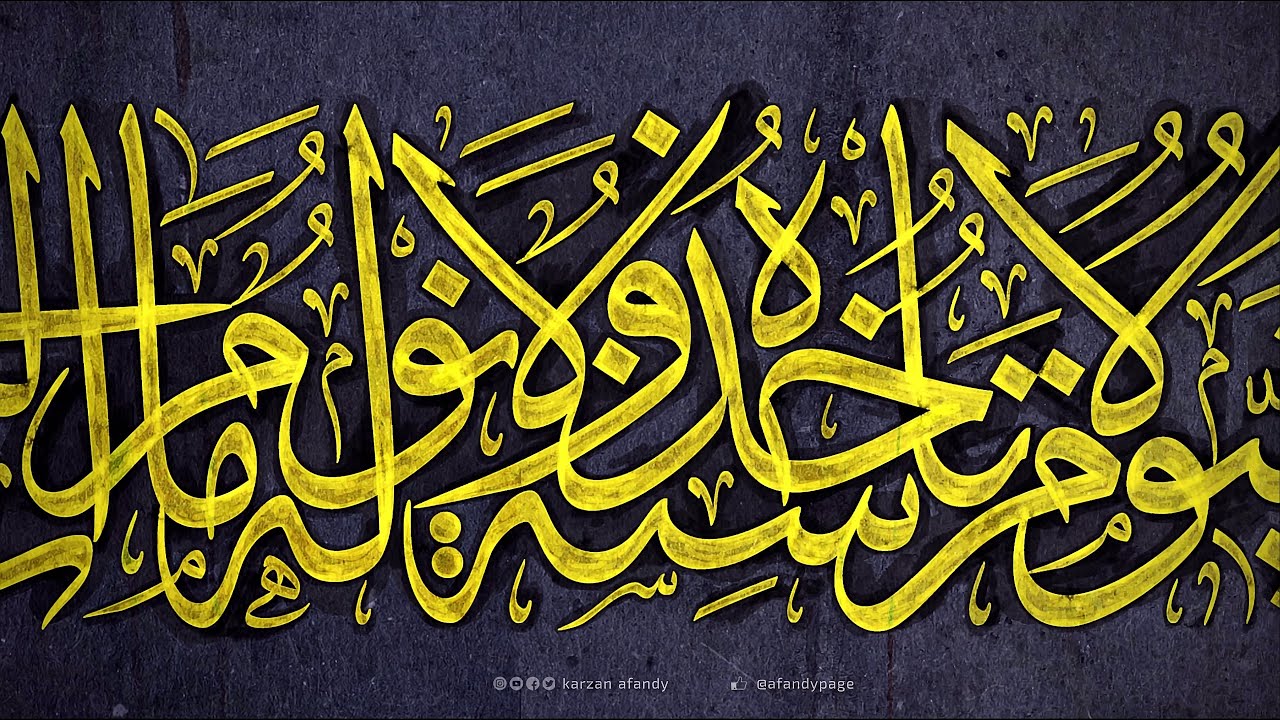 لَا تَأْخُذُهُ سِنَةٌ وَلَا نَوْمٌ لَهُ مَا
karzan afandy @afandypage